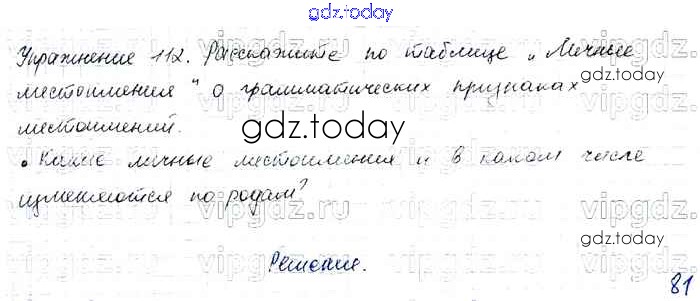 gdz.today
Упражнение 112. Расскажите по таблице „Личные
gdz.today
местоимения“ о грамматических признаках
местоимений.
gdz.today
• Какие личные местоимения и в каком числе
изменяются по родам?
gdz.today
Решение.
81
vipgdz.ru